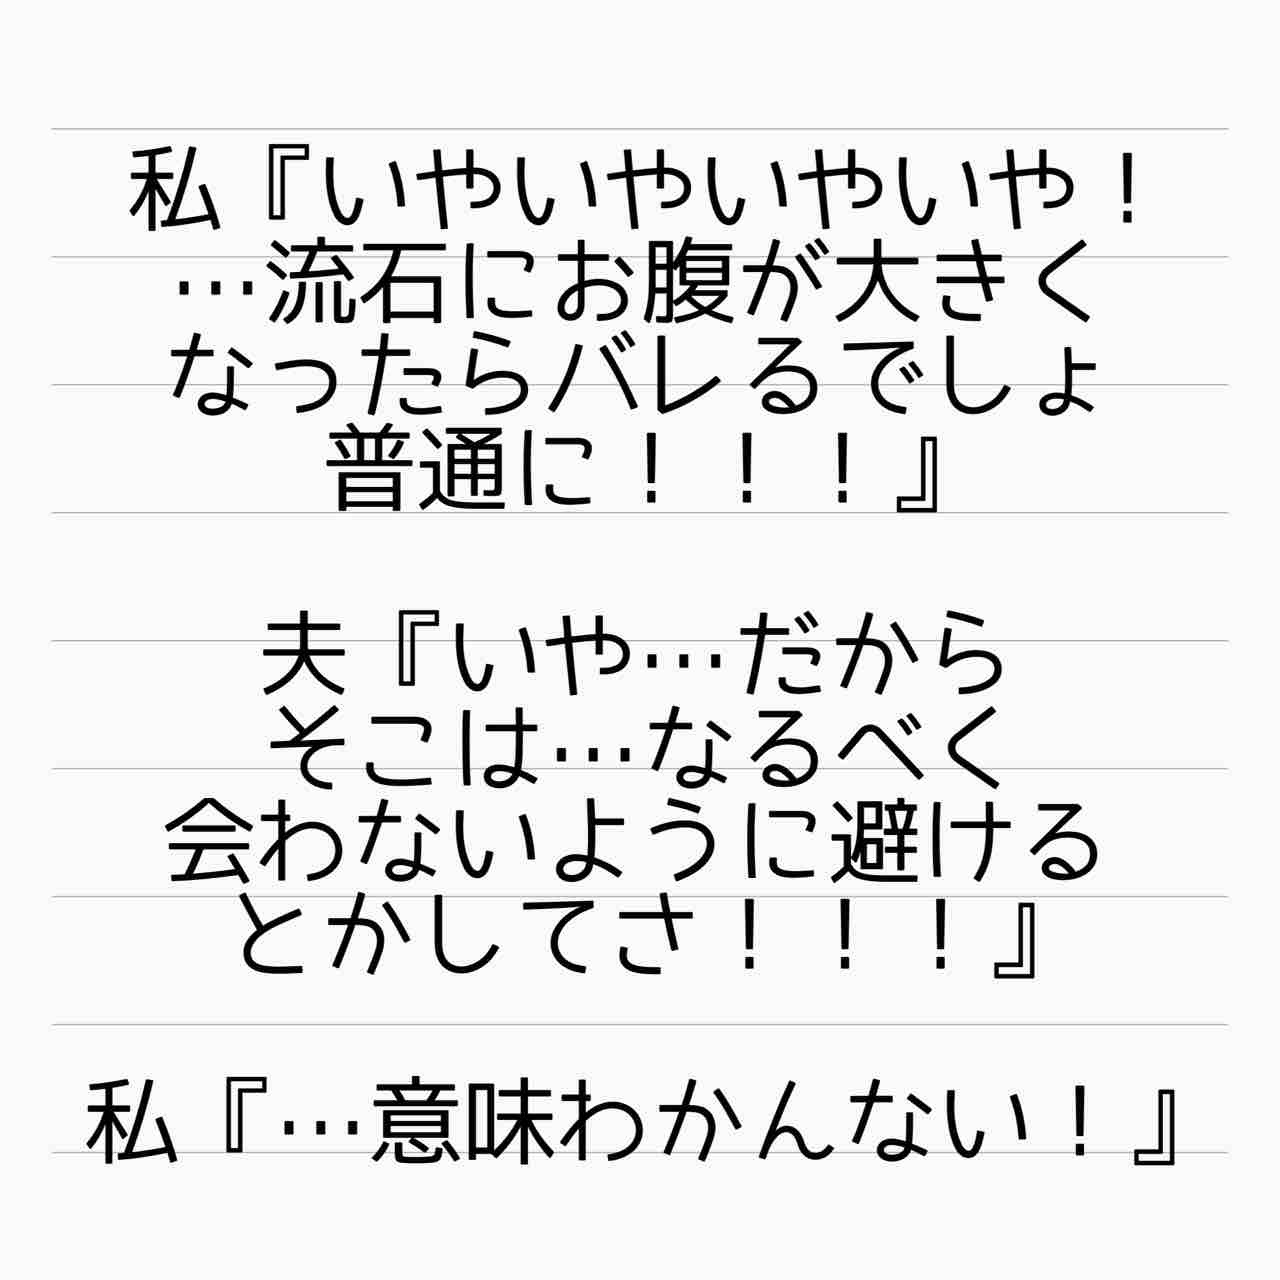 私『いやいやいやいや！
…流石にお腹が大きく
なったらバレるでしょ
普通に！！！』
夫『いや…だから
そこは…なるべく
会わないように避ける
とかしてさ！！！』
私『…意味わかんない！』